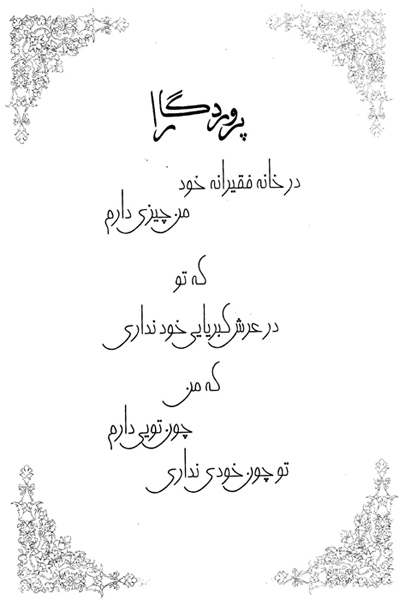 پروردگارا
در خانه فقیرانه خود
من چیزی دارم
که تو
در عرش کبریایی خود نداری
که من
چون تویی دارم
تو چون خودی نداری